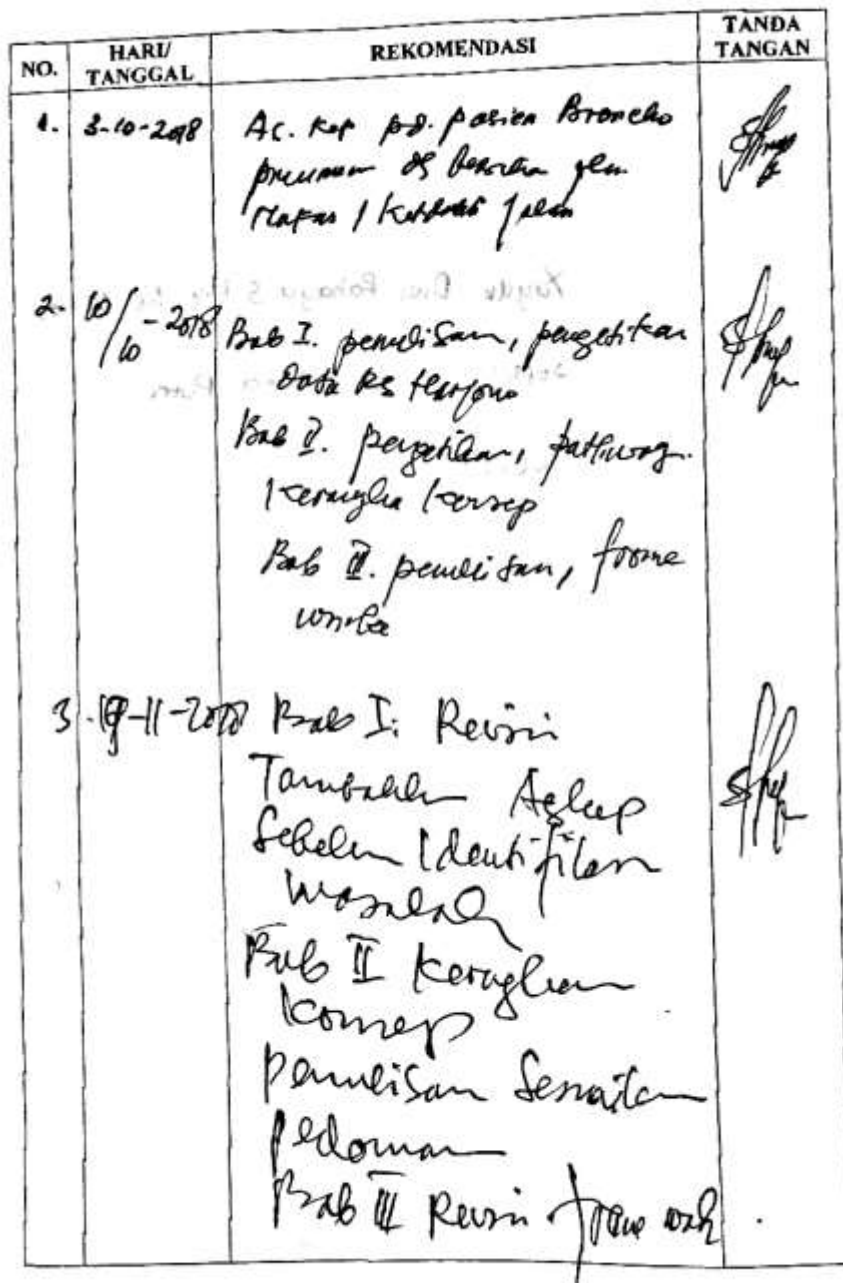 NO. HARI/ TANGGAL REKOMENDASI TANDA TANGAN
1. 3-10-2018 As. Kep pd. pasien Broncho
pneumon dg bersihan jln
nafas / jalan
2. 10/10-2018 Bab I. penulisan, pengetikan
Data RS
Bab II. pengetikan, pathway
Kerangka konsep
Bab III. penulisan, frame
work
3. -11-2018 Bab I: Revisi
Tambahkan Askep
Sebelum Identifikasi
masalah
Bab II Kerangka
Konsep
penulisan Sesuaikan
pedoman
Bab III Revisi frame work